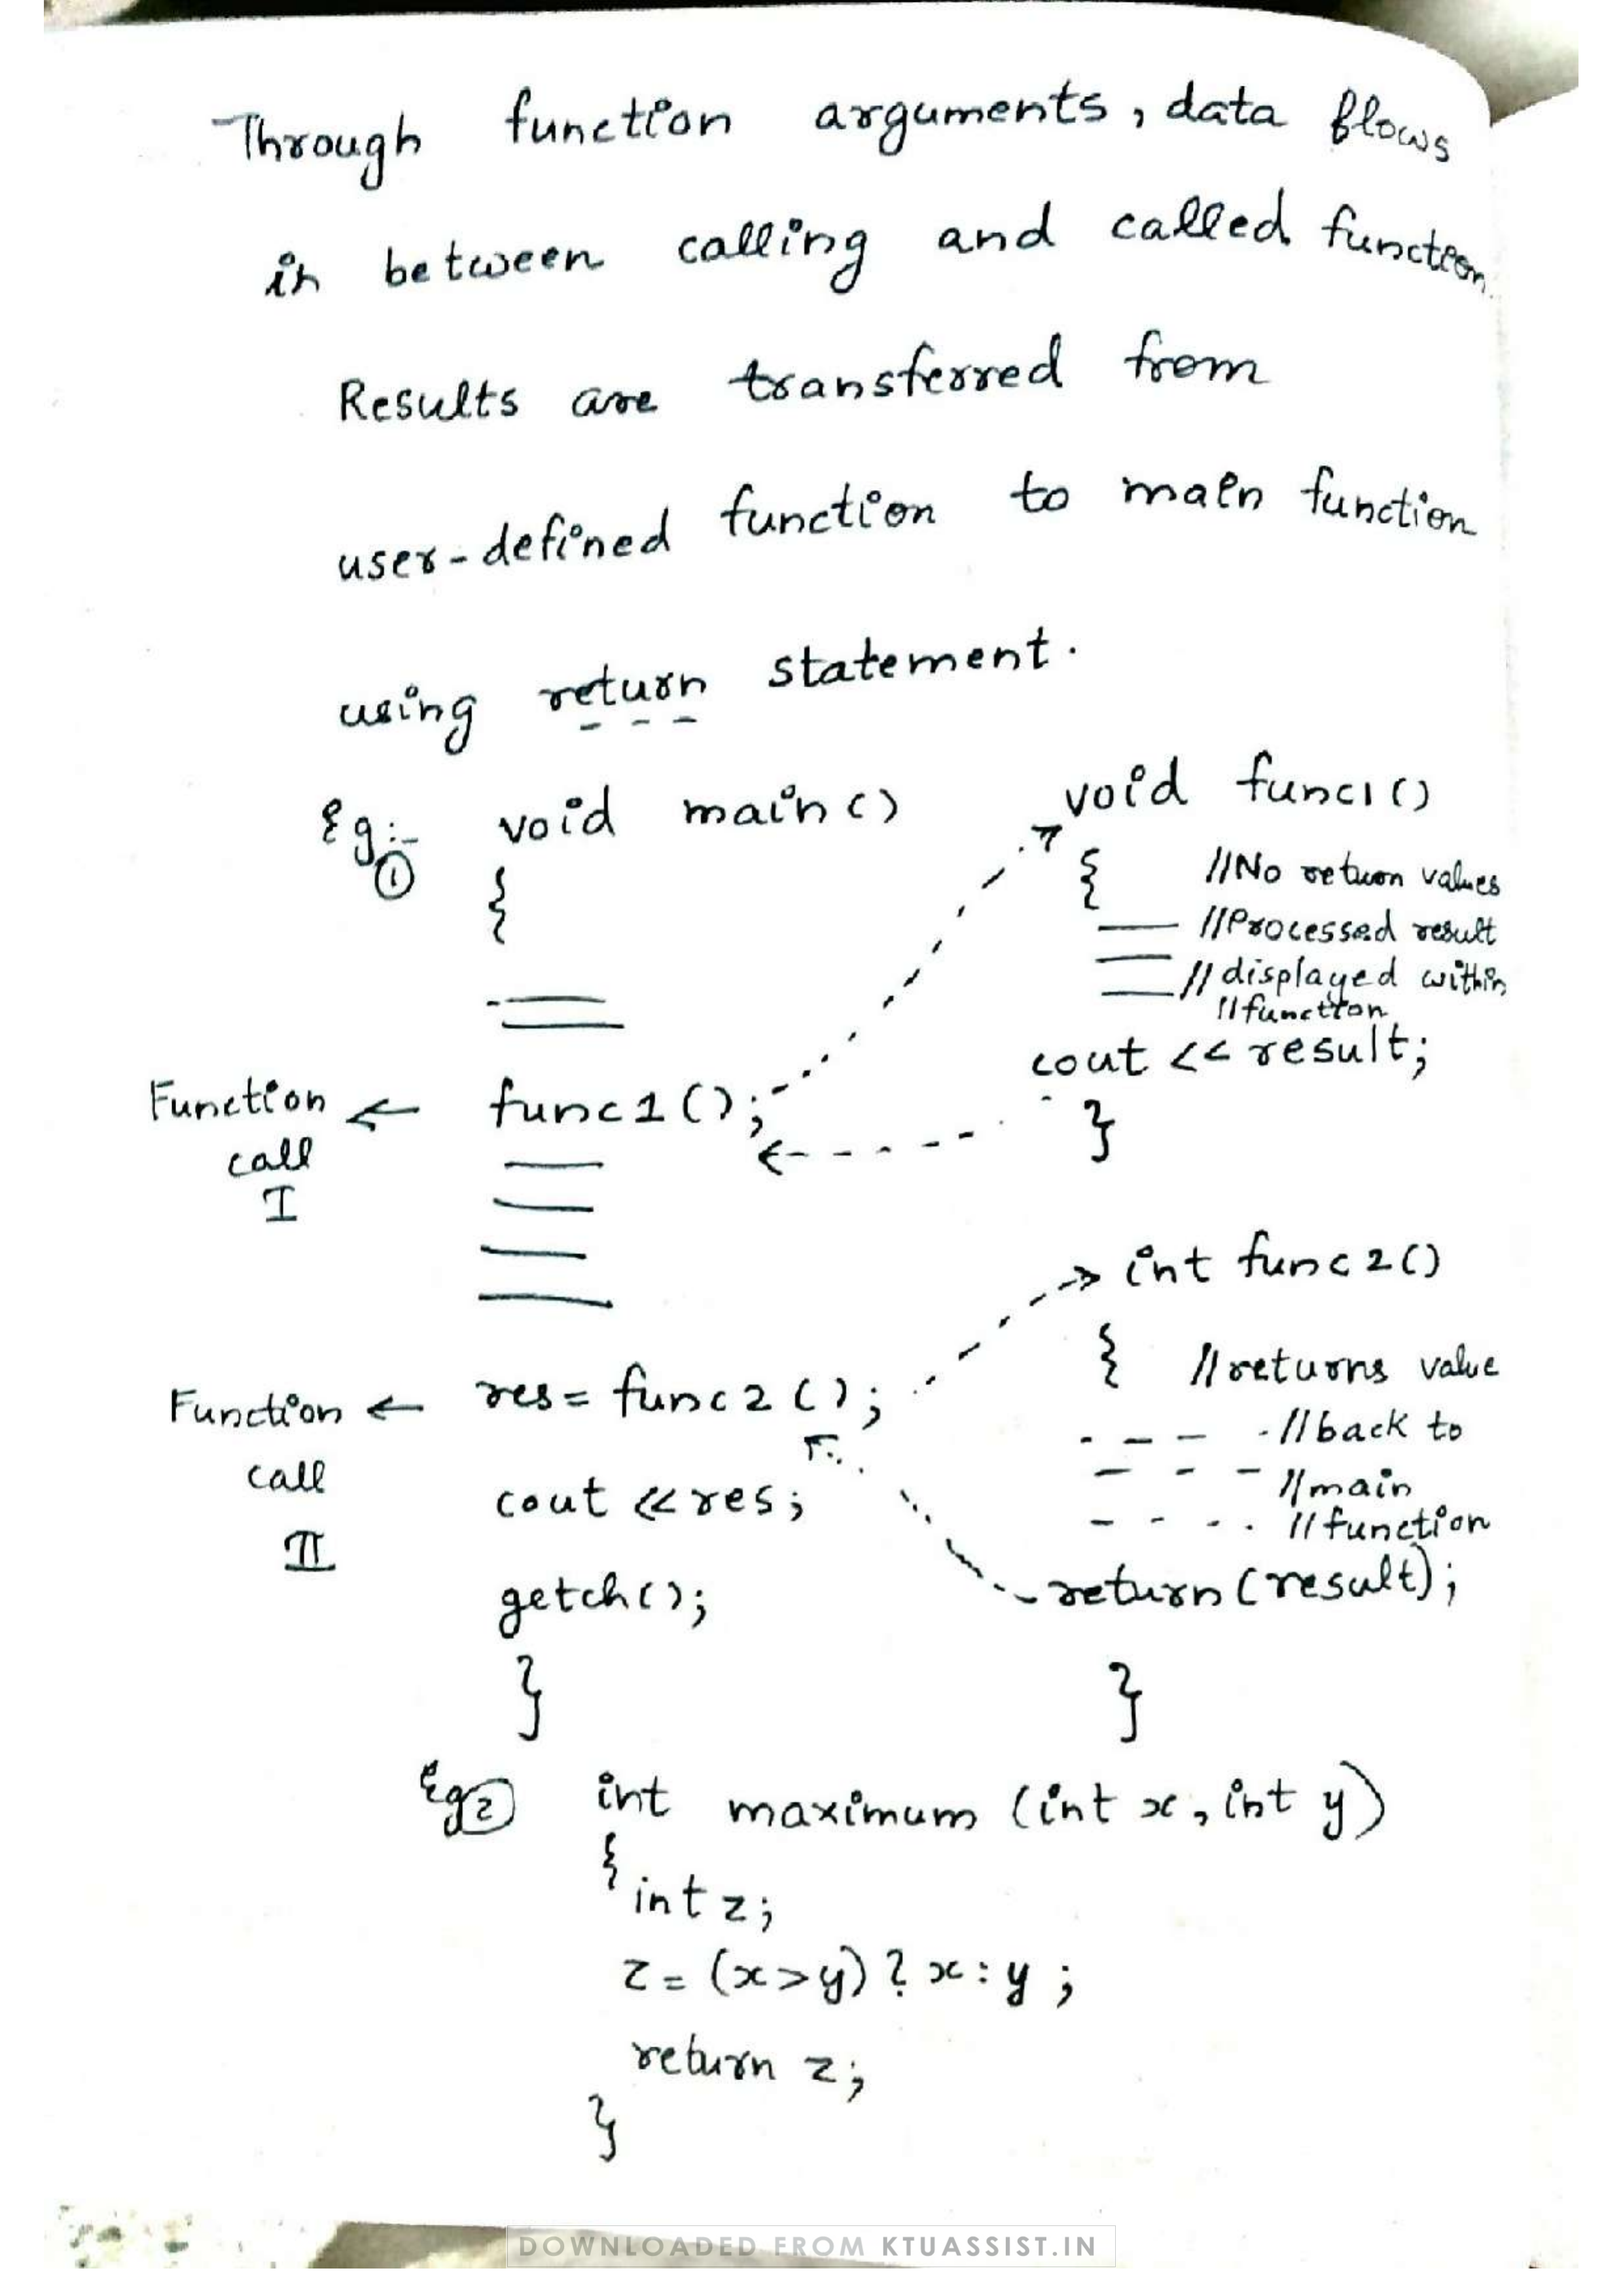 Through function arguments, data flows
in between calling and called function.
Results are transferred from
user-defined function to main function
using return statement.
Eg:- ① void main()
{
func1();
Function call I
res = func2();
Function call II
cout << res;
getch();
}
void func1()
{ //No return values
//Processed result
//displayed within
//function
cout << result;
}
int func2()
{ //returns value
//back to
//main
//function
return(result);
}
Eg② int maximum (int x, int y)
{
int z;
z = (x>y) ? x : y ;
return z;
}
DOWNLOADED FROM KTUASSIST.IN